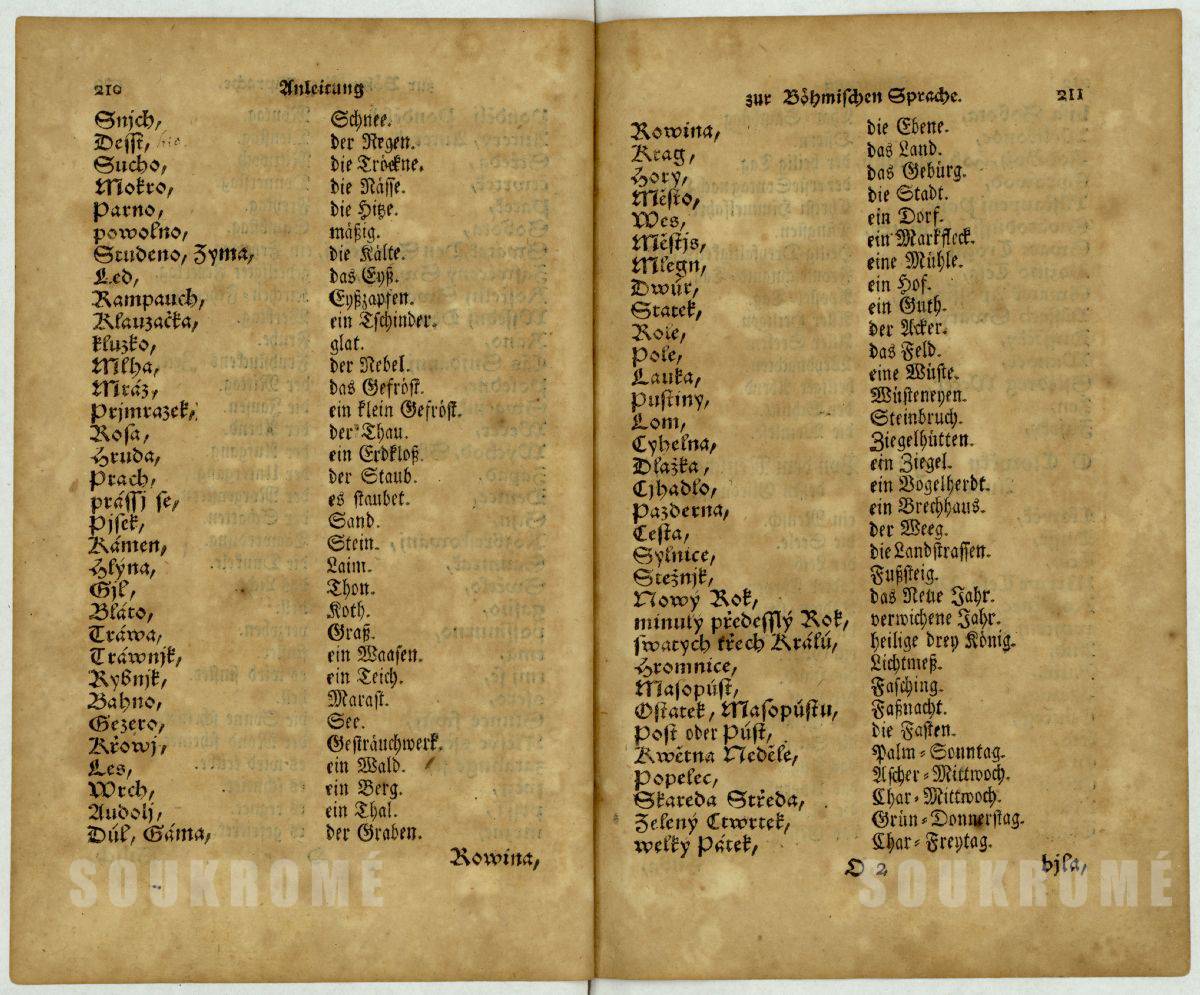 210 Anleitung
Snjch, Schnee.
Dessť, der Regen.
Sucho, die Tröckne.
Mokro, die Nässe.
Parno, die Hitze.
powolno, mäßig.
Studeno, Zyma, die Kälte.
Led, das Eyß.
Rampauch, Eyßzapfen.
Klauzačka, ein Tschinder.
kluzko, glat.
Mlha, der Nebel.
Mráz, das Gefröst.
Prjmrazek, ein klein Gefröst.
Rosa, der Thau.
Hruda, ein Erdkloß.
Prach, der Staub.
prássj se, es staubet.
Pjsek, Sand.
Kámen, Stein.
Hlyna, Laim.
Gjl, Thon.
Bláto, Koth.
Tráwa, Graß.
Tráwnjk, ein Waasen.
Rybnjk, ein Teich.
Bahno, Marast.
Gezero, See.
Křowj, Gesträuchwerk.
Les, ein Wald.
Wrch, ein Berg.
Audolj, ein Thal.
Důl, Gáma, der Graben.
Rowina,
zur Böhmischen Sprache. 211
Rowina, die Ebene.
Krag, das Land.
Hory, das Gebürg.
Město, die Stadt.
Wes, ein Dorf.
Městjs, ein Markfleck.
Mlegn, eine Mühle.
Dwůr, ein Hof.
Statek, ein Guth.
Role, der Acker.
Pole, das Feld.
Lauka, eine Wüste.
Pustiny, Wüsteneyen.
Lom, Steinbruch.
Cyhelna, Ziegelhütten.
Dlažka, ein Ziegel.
Cjhadlo, ein Vogelherdt.
Pazderna, ein Brechhaus.
Cesta, der Weeg.
Sylnice, die Landstrassen.
Stežnjk, Fußsteig.
Nowý Rok, das Neue Jahr.
minulý předesslý Rok, verwichene Jahr.
swatych třech Králů, heilige drey König.
Hromnice, Lichtmeß.
Masopůst, Fasching.
Ostatek, Masopůstu, Faßnacht.
Post oder Půst, die Fasten.
Kwětna Neděle, Palm-Sonntag.
Popelec, Ascher-Mittwoch.
Skareda Středa, Char-Mittwoch.
Zelený Ctwrtek, Grün-Donnerstag.
welky Pátek, Char-Freytag.
O 2 bjla,
SOUKROMÉ SOUKROMÉ